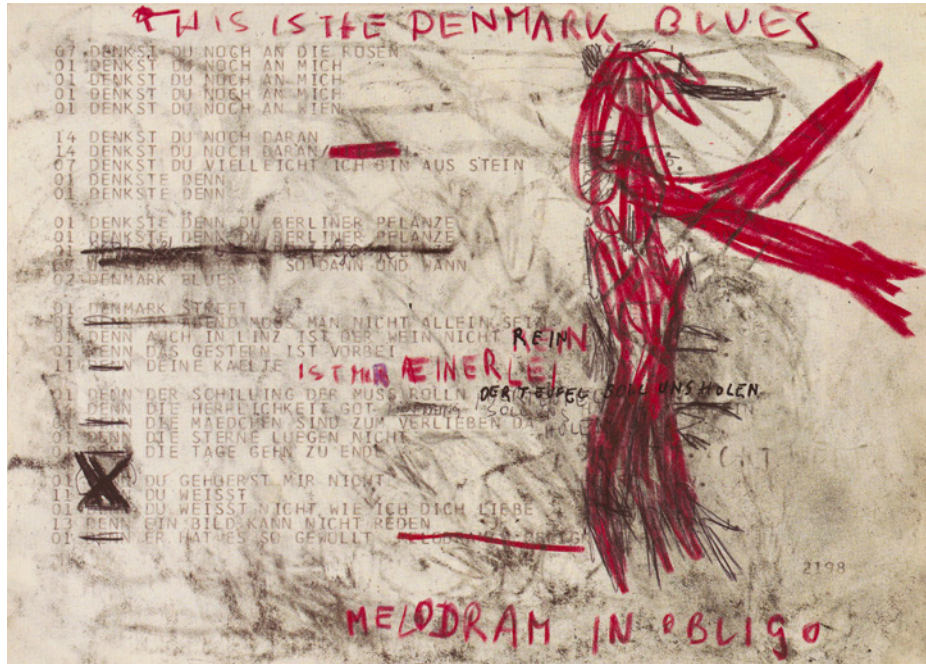 THIS IS THE DENMARK BLUES
07 DENKST DU NOCH AN DIE ROSEN
01 DENKST DU NOCH AN MICH
01 DENKST DU NOCH AN MICH
01 DENKST DU NOCH AN MICH
01 DENKST DU NOCH AN WIEN
14 DENKST DU NOCH DARAN
14 DENKST DU NOCH DARAN
07 DENKST DU VIELLEICHT ICH BIN AUS STEIN
01 DENKSTE DENN
01 DENKSTE DENN
01 DENKSTE DENN DU BERLINER PFLANZE
01 DENKSTE DENN DU BERLINER PFLANZE
SO DANN UND WANN
02 DENMARK BLUES
01 DENMARK STREET
ABEND MUSS MAN NICHT ALLEIN SEIN
01 DENN AUCH IN LINZ IST DER WEIN NICHT REINN
01 DENN DAS GESTERN IST VORBEI
11 DENN DEINE KAELTE IST MIR ÆINERLEI
01 DENN DER SCHILLING DER MUSS ROLLN DER TEUFEL SOLL UNS HOLEN
DENN DIE HERRLICHKEIT GOT SOLL HOLE
01 DENN DIE MAEDCHEN SIND ZUM VERLIEBEN DA
01 DENN DIE STERNE LUEGEN NICHT
DIE TAGE GEHN ZU ENDE
01 DENN DU GEHOERST MIR NICHT
11 DENN DU WEISST
01 DENN DU WEISST NICHT WIE ICH DICH LIEBE
13 DENN EIN BILD KANN NICHT REDEN
01 DENN ER HAT ES SO GEWOLLT
2198
MELODRAM IN OBLIGO